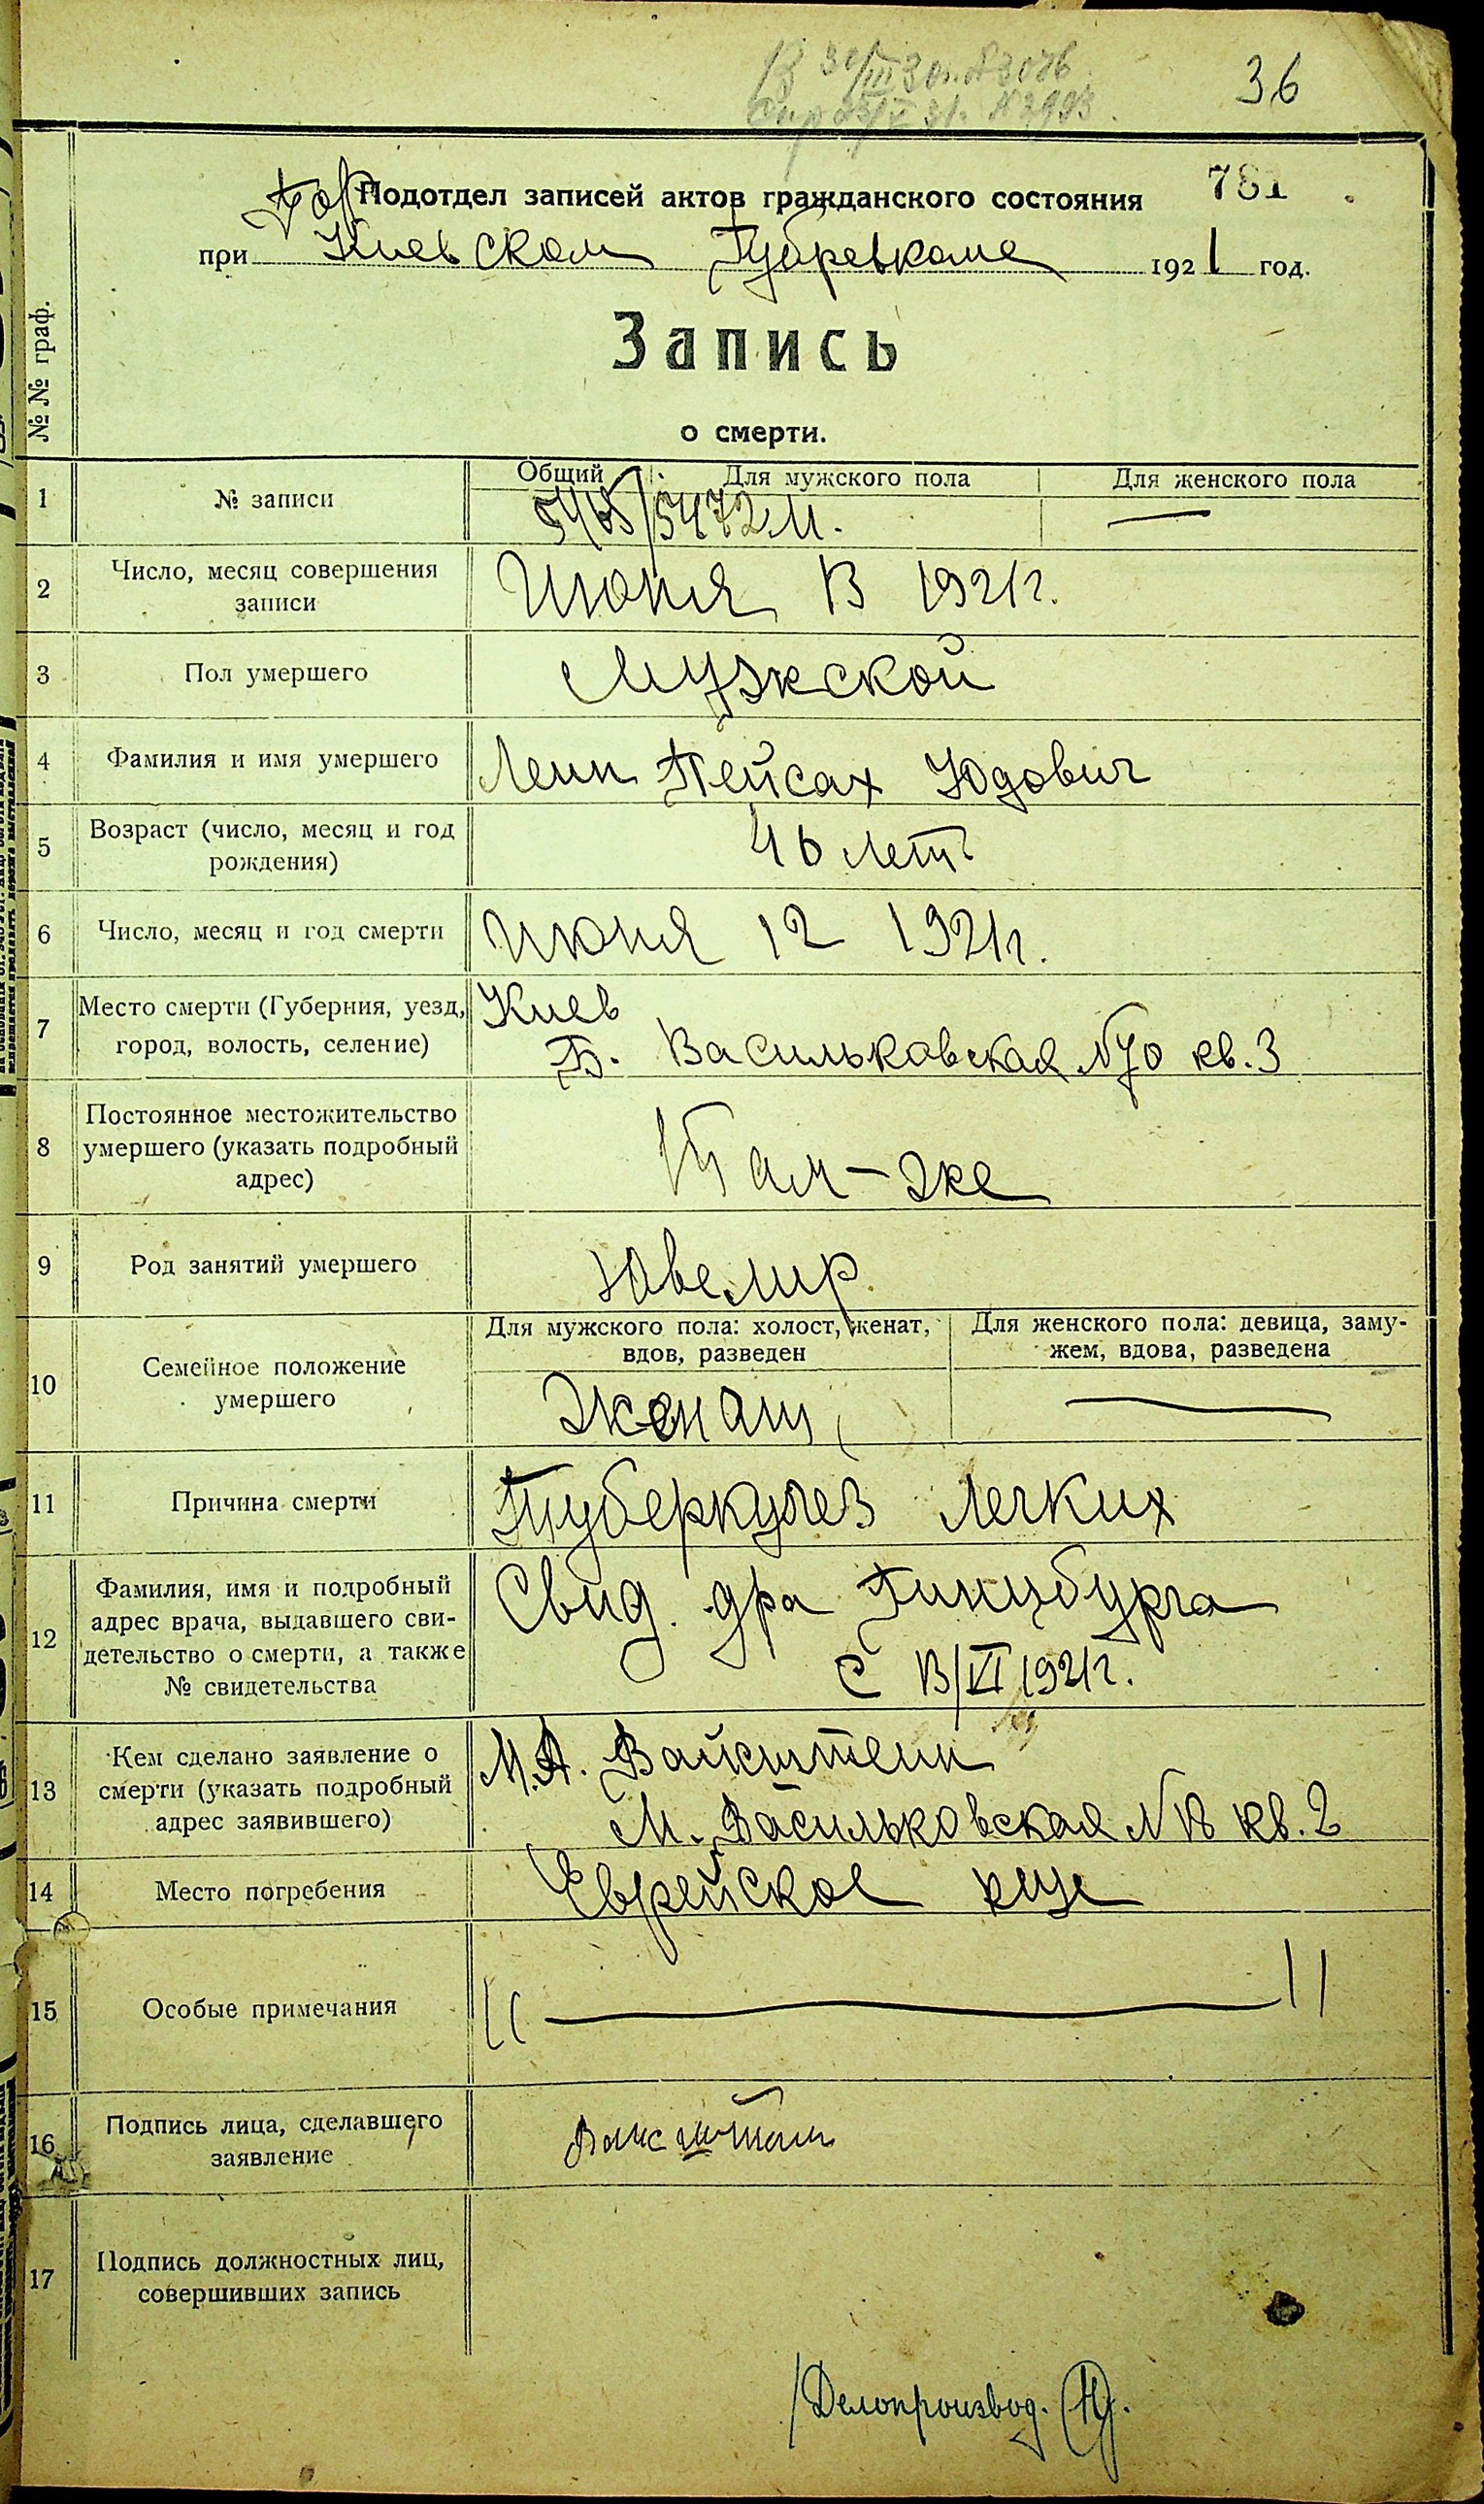 36
781
Гор Подотдел записей актов гражданского состояния
при Киевском Губревкоме 1921 год.
Запись
о смерти.
№№ граф.
Общий Для мужского пола Для женского пола
1 № записи 5472 М. —
2 Число, месяц совершения
записи
Июня 13 1921г.
3 Пол умершего Мужской
4 Фамилия и имя умершего Пейсах Юдович
5 Возраст (число, месяц и год
рождения)
46 лет
6 Число, месяц и год смерти Июня 12 1921г.
7 Место смерти (Губерния, уезд,
город, волость, селение)
Киев
Б. Васильковская №70 кв. 3
8 Постоянное местожительство
умершего (указать подробный
адрес)
Там-же
9 Род занятий умершего Ювелир
10 Семейное положение
умершего
Для мужского пола: холост, женат,
вдов, разведен
Для женского пола: девица, заму-
жем, вдова, разведена
женат —
11 Причина смерти Туберкулез легких
12 Фамилия, имя и подробный
адрес врача, выдавшего сви-
детельство о смерти, а также
№ свидетельства
Свид. дра Гинцбурга
с 13/VI 1921г.
13 Кем сделано заявление о
смерти (указать подробный
адрес заявившего)
М.А. Вайнштейн
М. Васильковская №13 кв. 2
14 Место погребения Еврейское кще
15 Особые примечания
16 Подпись лица, сделавшего
заявление
17 Подпись должностных лиц,
совершивших запись
Делопроизвод.